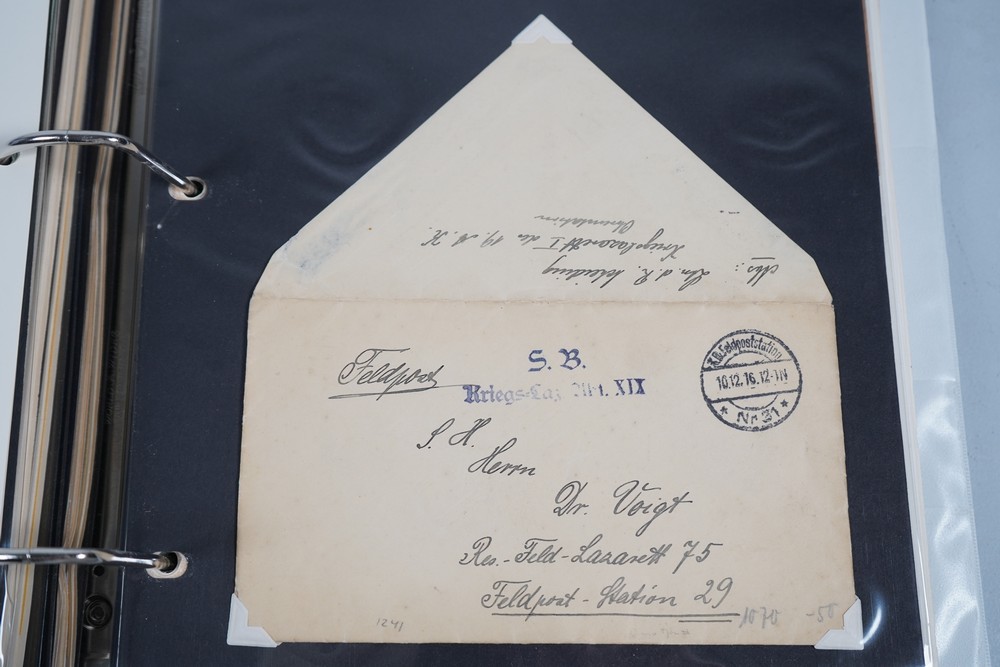 Abs: Ltn. d. R.
Kriegslazarett I des 19. A. K.
Feldpost
S. B.
Kriegs-Laz. Abt. XIX
K.D. Feldpoststation
10.12.16. 12-1N
* Nr 31 *
S. H.
Herrn
Dr. Voigt
Res.-Feld-Lazarett 75
Feldpost-Station 29
1241
1070 -50